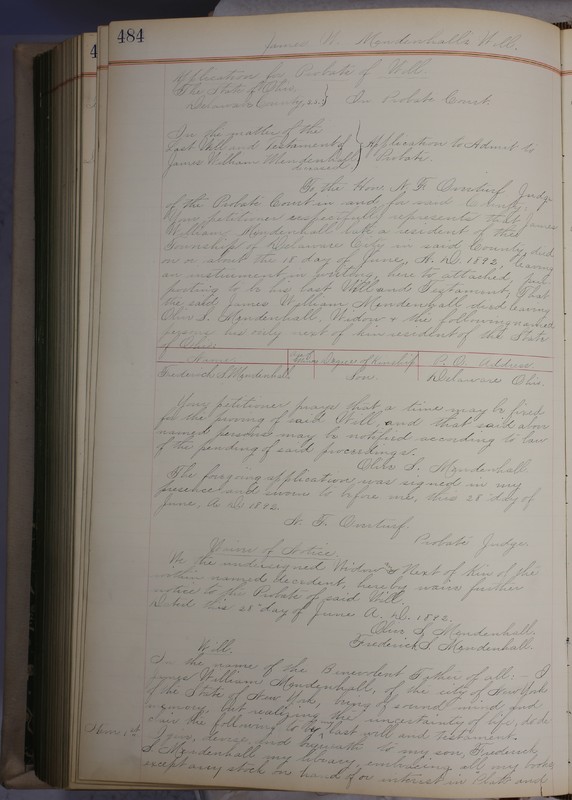 484
James W. Mendenhalls Will.
Application for Probate of Will.
The State of Ohio,
Delaware County, ss. } In Probate Court.
In the matter of the
Last Will and Testament of } Application to Admit to
James William Mendenhall Probate.
deceased
To the Hon. N. F. Overturf, Judge
of the Probate Court in and for said County:
Your petitioner respectfully represents that James
William Mendenhall late a resident of the
Township of Delaware City in said County, died
on or about the 18 day of June, A. D. 1892, leaving
an instrument in writing, here to attached, pur-
porting to be his last Will and Testament; That
the said James William Mendenhall died leaving
Olive S. Mendenhall, Widow & the following named
persons his only next of kin resident of the State
of Ohio:
Name Degree of Kinship P. O. Address
Frederick S. Mendenhall Son. Delaware Ohio.
Your petitioner prays that a time may be fixed
for the proving of said Will, and that said above
named persons may be notified according to law
of the pending of said proceedings.
Olive S. Mendenhall
The foregoing application was signed in my
presence and sworn to before me, this 28" day of
June, A. D. 1892.
N. F. Overturf
Probate Judge.
Waiver of Notice.
We the undersigned Widow & Next of Kin of the
within named decedent, hereby waive further
notice to the Probate of said Will.
Dated this 28" day of June A. D. 1892.
Olive S. Mendenhall.
Frederick S. Mendenhall.
Will.
In the name of the Benevolent Father of all:- I
James William Mendenhall, of the city of New York
of the State of New York, being of sound mind and
memory, but realizing the uncertainty of life, do de-
clare the following to by last will and testament.
Item 1st. I give, devise and bequeath to my son, Frederick
S. Mendenhall my library, embracing all my books
except any stock on hand for interest in Plato and